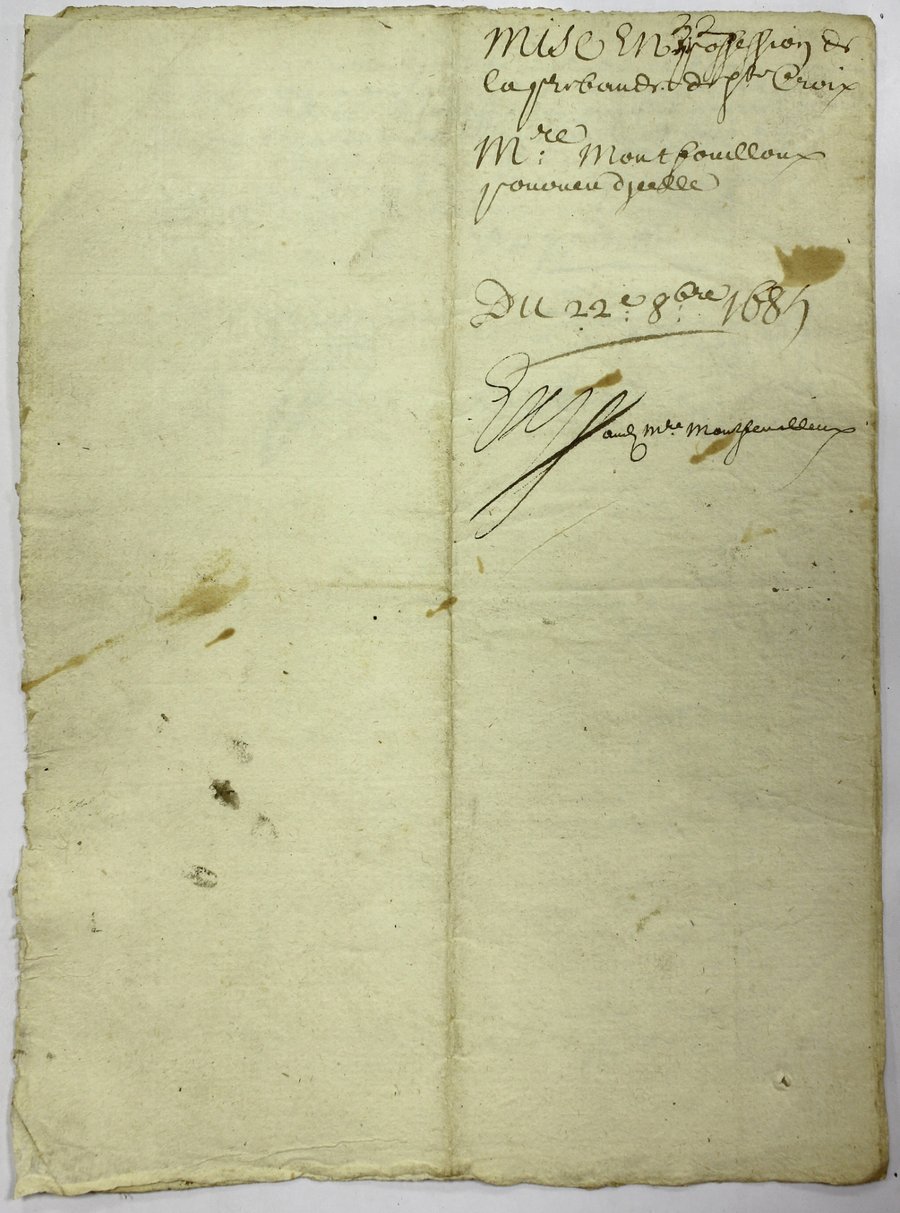 Mise En possession de
la prebande de ste Croix
Mre Montfouilloux
pourveu d'jcelle
Du 22e 8bre 1685
audj mre Montfouilloux